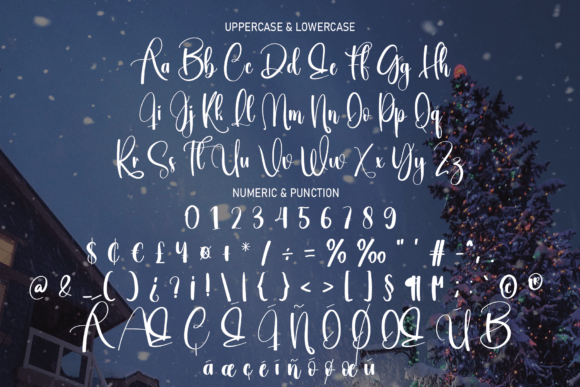 UPPERCASE & LOWERCASE
Aa Bb Cc Dd Ee Ff Gg Hh
Ii Jj Kk Ll Mm Nn Oo Pp Qq
Rr Ss Tt Uu Vv Ww Xx Yy Zz
NUMERIC & PUNCTION
0 1 2 3 4 5 6 7 8 9
$ ¢ € £ ¥ ¤ + * / ÷ = % ‰ " ' # - ~ , .
@ & _ ( ) ¿ ? ¡ ! \ | { } < > [ ] § ¶ µ ; ` © ®
Á Æ Ç É Í Ñ Ó Ø Œ Ú ß
á æ ç é í ñ ó ø œ ú